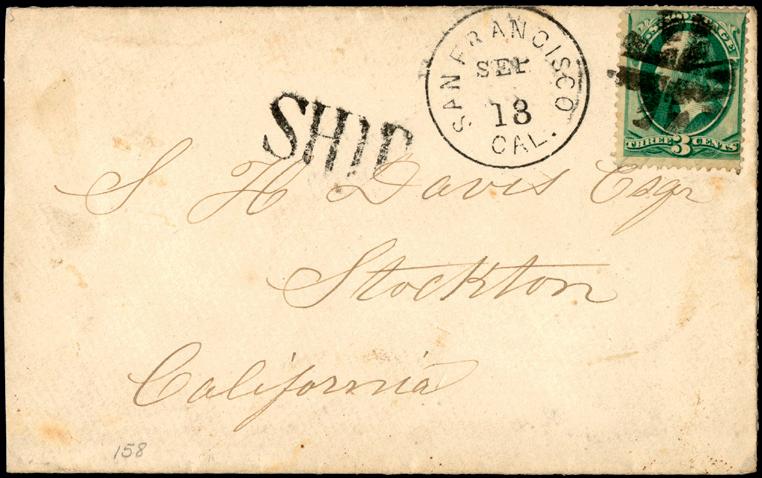 SAN FRANCISCO
SEP
18
CAL.
THREE 3 CENTS
SHIP
S H Davis Esqr
Stockton
California
158